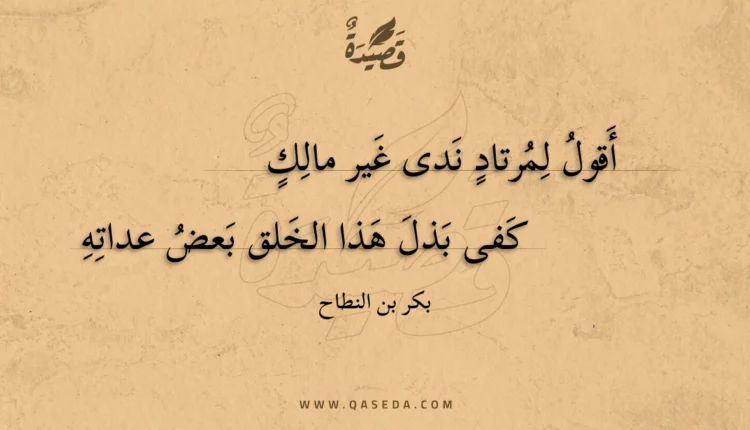 قَصِيْدَةٌ
أَقولُ لِمُرتادٍ نَدى غَير مالِكٍ
كَفى بَذلَ هَذا الخَلق بَعضُ عداتِهِ
بكر بن النطاح
WWW.QASEDA.COM